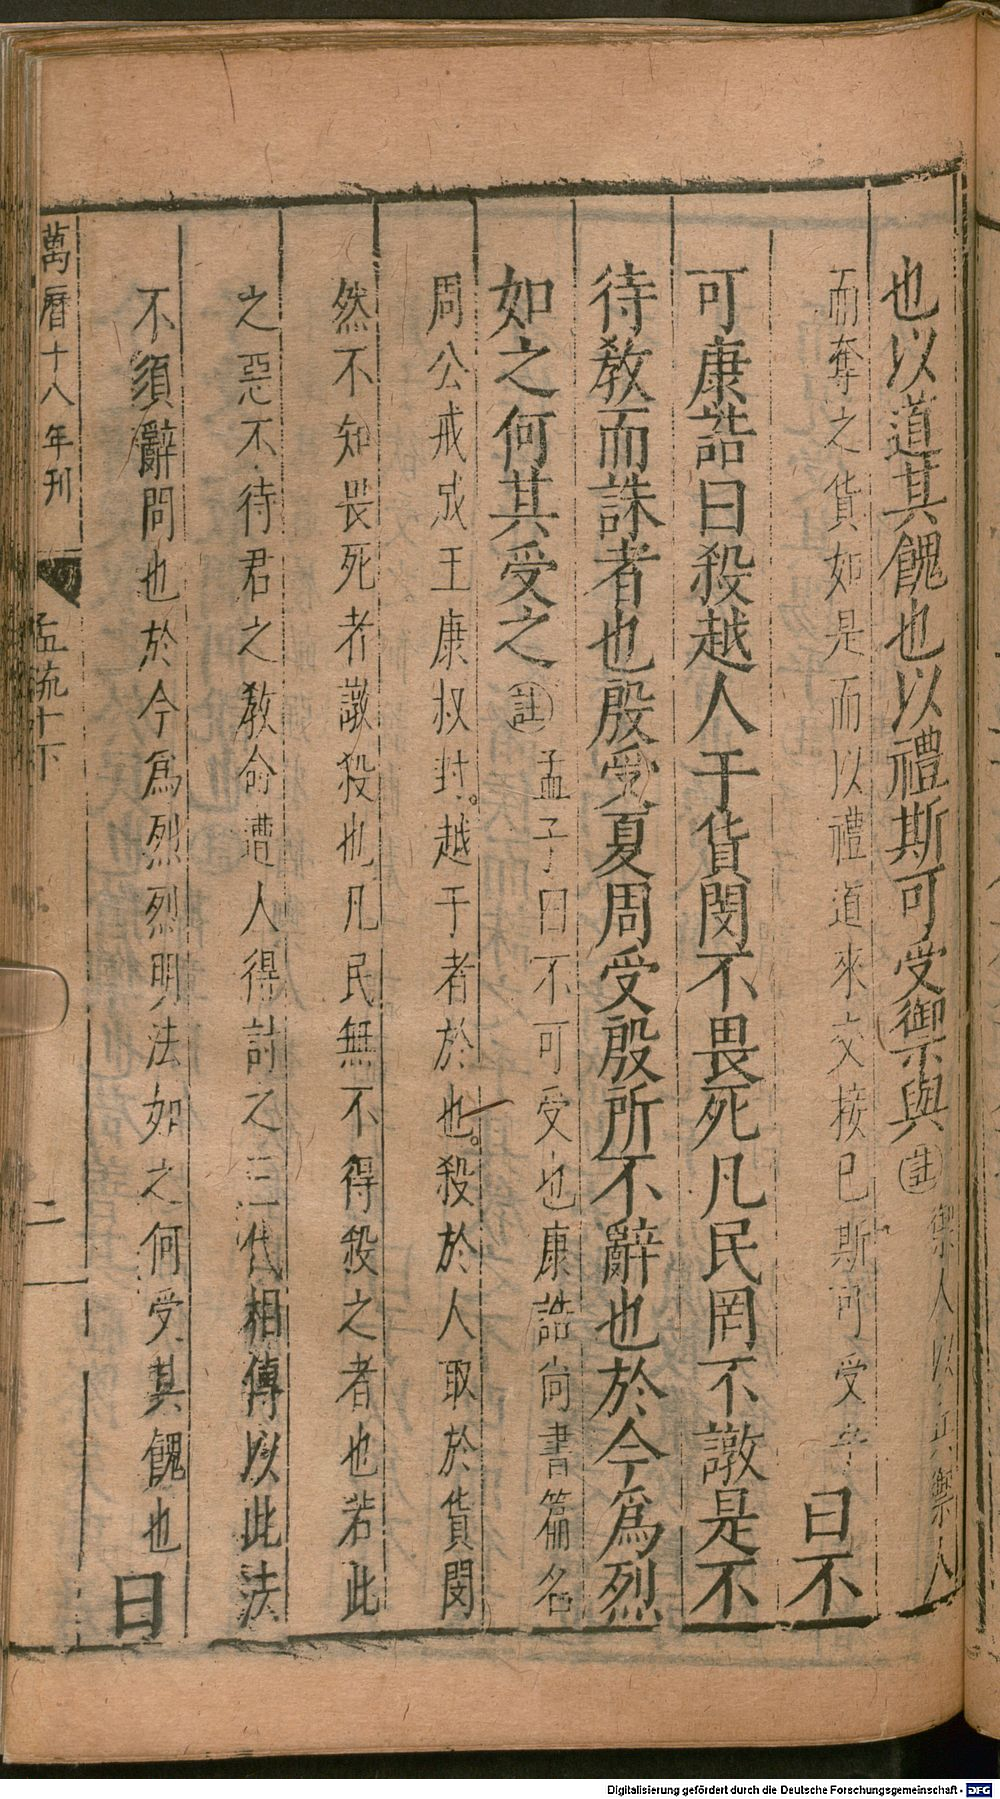 也以道其餽也以禮斯可受禦與註禦人以兵禦人
而奪之貨如是而以禮道來交接已斯可受乎曰不
可康誥曰殺越人于貨閔不畏死凡民罔不譈是不
待敎而誅者也殷受夏周受殷所不辭也於今爲烈
如之何其受之註孟子曰不可受也康誥尚書篇名
周公戒成王康叔封。越于者於也。殺於人取於貨閔
然不知畏死者譈殺也凡民無不得殺之者也若此
之惡不待君之敎命遭人得討之三代相傳以此法
不須辭問也於今爲烈烈明法如之何受其餽也曰
萬曆十八年刊 孟疏十下 二
Digitalisierung gefördert durch die Deutsche Forschungsgemeinschaft - DFG